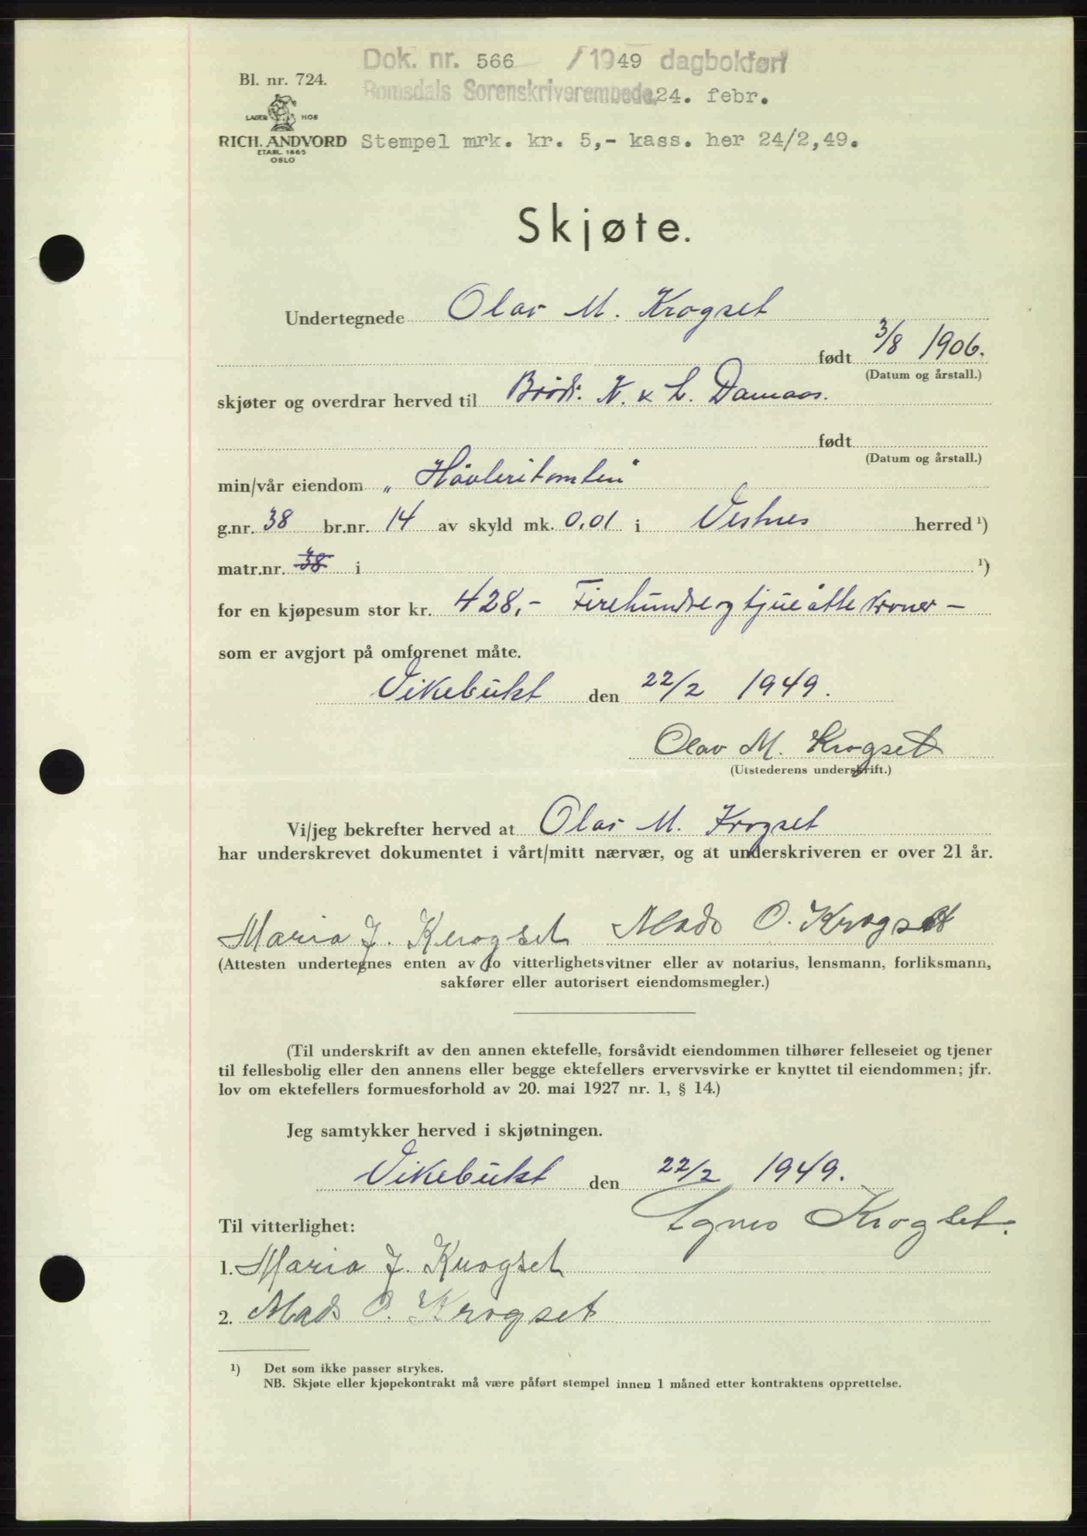 Dok. nr. 566 / 1949 dagbokført
Romsdals Sorenskriverembede 24. febr.
Bl. nr. 724.
LAGER HOS
RICH. ANDVORD
ETABL. 1865
OSLO
Stempel mrk. kr. 5,- kass. her 24/2,49.
Skjøte.
Undertegnede Olav M. Krogset
født 3/8 1906.
(Datum og årstall.)
skjøter og overdrar herved til Brødr. N. & L. Damaas.
født
(Datum og årstall.)
min/vår eiendom „Høvleritomten"
g.nr. 38 br.nr. 14 av skyld mk. 0,01 i Vestnes herred ¹)
matr.nr. 38 i ¹)
for en kjøpesum stor kr. 428,- Firehundreogtjueåtte kroner –
som er avgjort på omforenet måte.
Vikebukt den 22/2 1949.
Olav M. Krogset
(Utstederens underskrift.)
Vi/jeg bekrefter herved at Olav M. Krogset
har underskrevet dokumentet i vårt/mitt nærvær, og at underskriveren er over 21 år.
Maria J. Krogset Mads O. Krogset
(Attesten undertegnes enten av to vitterlighetsvitner eller av notarius, lensmann, forliksmann,
sakfører eller autorisert eiendomsmegler.)
(Til underskrift av den annen ektefelle, forsåvidt eiendommen tilhører felleseiet og tjener
til fellesbolig eller den annens eller begge ektefellers ervervsvirke er knyttet til eiendommen; jfr.
lov om ektefellers formuesforhold av 20. mai 1927 nr. 1, § 14.)
Jeg samtykker herved i skjøtningen.
Vikebukt den 22/2 1949.
Agnes Krogset.
Til vitterlighet:
1. Maria J. Krogset
2. Mads O. Krogset
¹) Det som ikke passer strykes.
NB. Skjøte eller kjøpekontrakt må være påført stempel innen 1 måned etter kontraktens opprettelse.